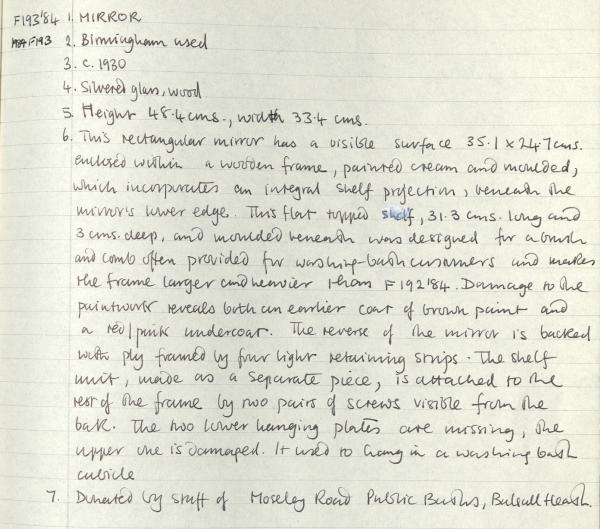 F193'84 1. MIRROR
1984 F193 2. Birmingham used
3. c. 1930
4. Silvered glass, wood
5. Height 48.4 cms., width 33.4 cms.
6. This rectangular mirror has a visible surface 35.1 x 24.7 cms.
enclosed within a wooden frame, painted cream and moulded,
which incorporates an integral shelf projection, beneath the
mirror's lower edge. This flat topped shelf, 31.3 cms. long and
3 cms. deep, and moulded beneath was designed for a brush
and comb often provided for washing-bath customers and makes
the frame larger and heavier than F192'84. Damage to the
paintwork reveals both an earlier coat of brown paint and
a red/pink undercoat. The reverse of the mirror is backed
with ply framed by four light retaining strips. The shelf
unit, made as a separate piece, is attached to the
rest of the frame by two pairs of screws visible from the
back. The two lower hanging plates are missing, the
upper one is damaged. It used to hang in a washing bath
cubicle
7. Donated by staff of Moseley Road Public Baths, Balsall Heath.